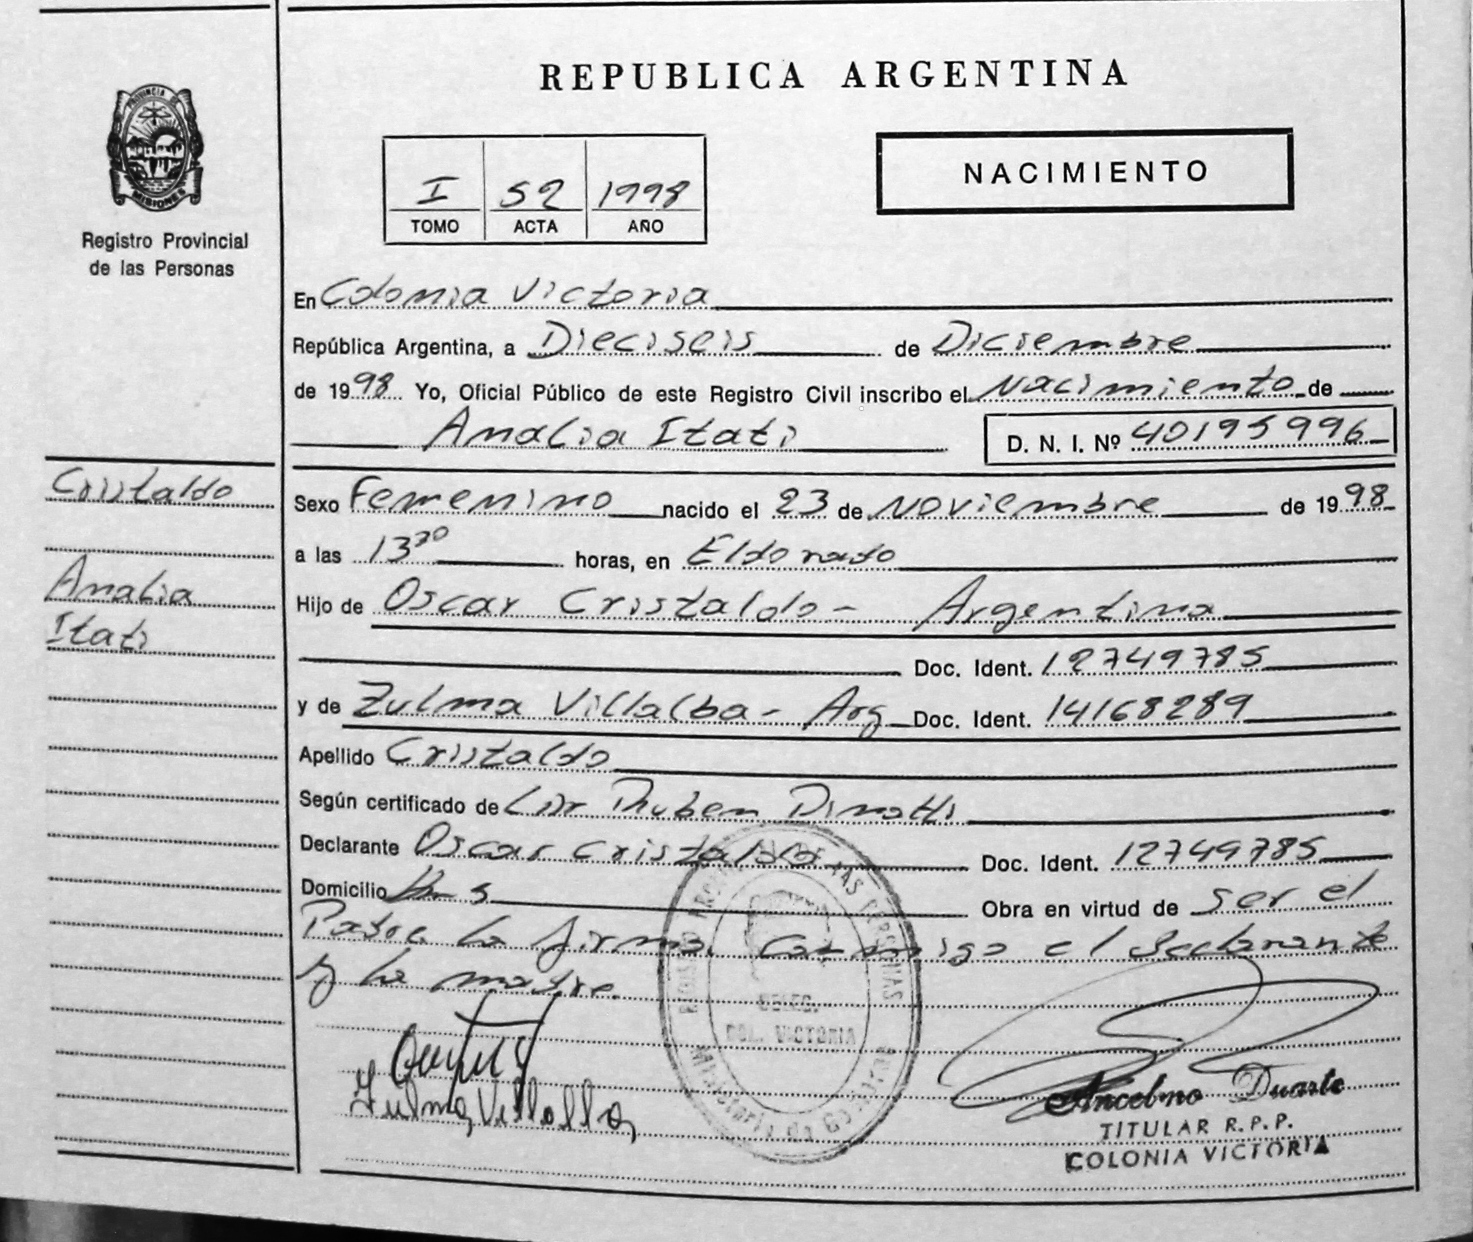 REPUBLICA ARGENTINA
PROVINCIA DE
MISIONES
Registro Provincial
de las Personas
I 52 1998
TOMO ACTA AÑO
NACIMIENTO
En Colonia Victoria
República Argentina, a Dieciseis de Diciembre
de 1998 Yo, Oficial Público de este Registro Civil inscribo el Nacimiento de
Analia Itati D. N. I. Nº 40195996
Cristaldo
Analia
Itati
Sexo Femenino nacido el 23 de Noviembre de 1998
a las 13³⁰ horas, en Eldorado
Hijo de Oscar Cristaldo - Argentina
Doc. Ident. 12749785
y de Zulma Villalba - Arg Doc. Ident. 14168289
Apellido Cristaldo
Según certificado de
Declarante Oscar Cristaldo Doc. Ident. 12749785
Domicilio Obra en virtud de ser el
Padre La firma conmigo el declarante
y la madre.
DELEG.
COL. VICTORIA
Zulma Villalba
Ancelmo Duarte
TITULAR R.P.P.
COLONIA VICTORIA